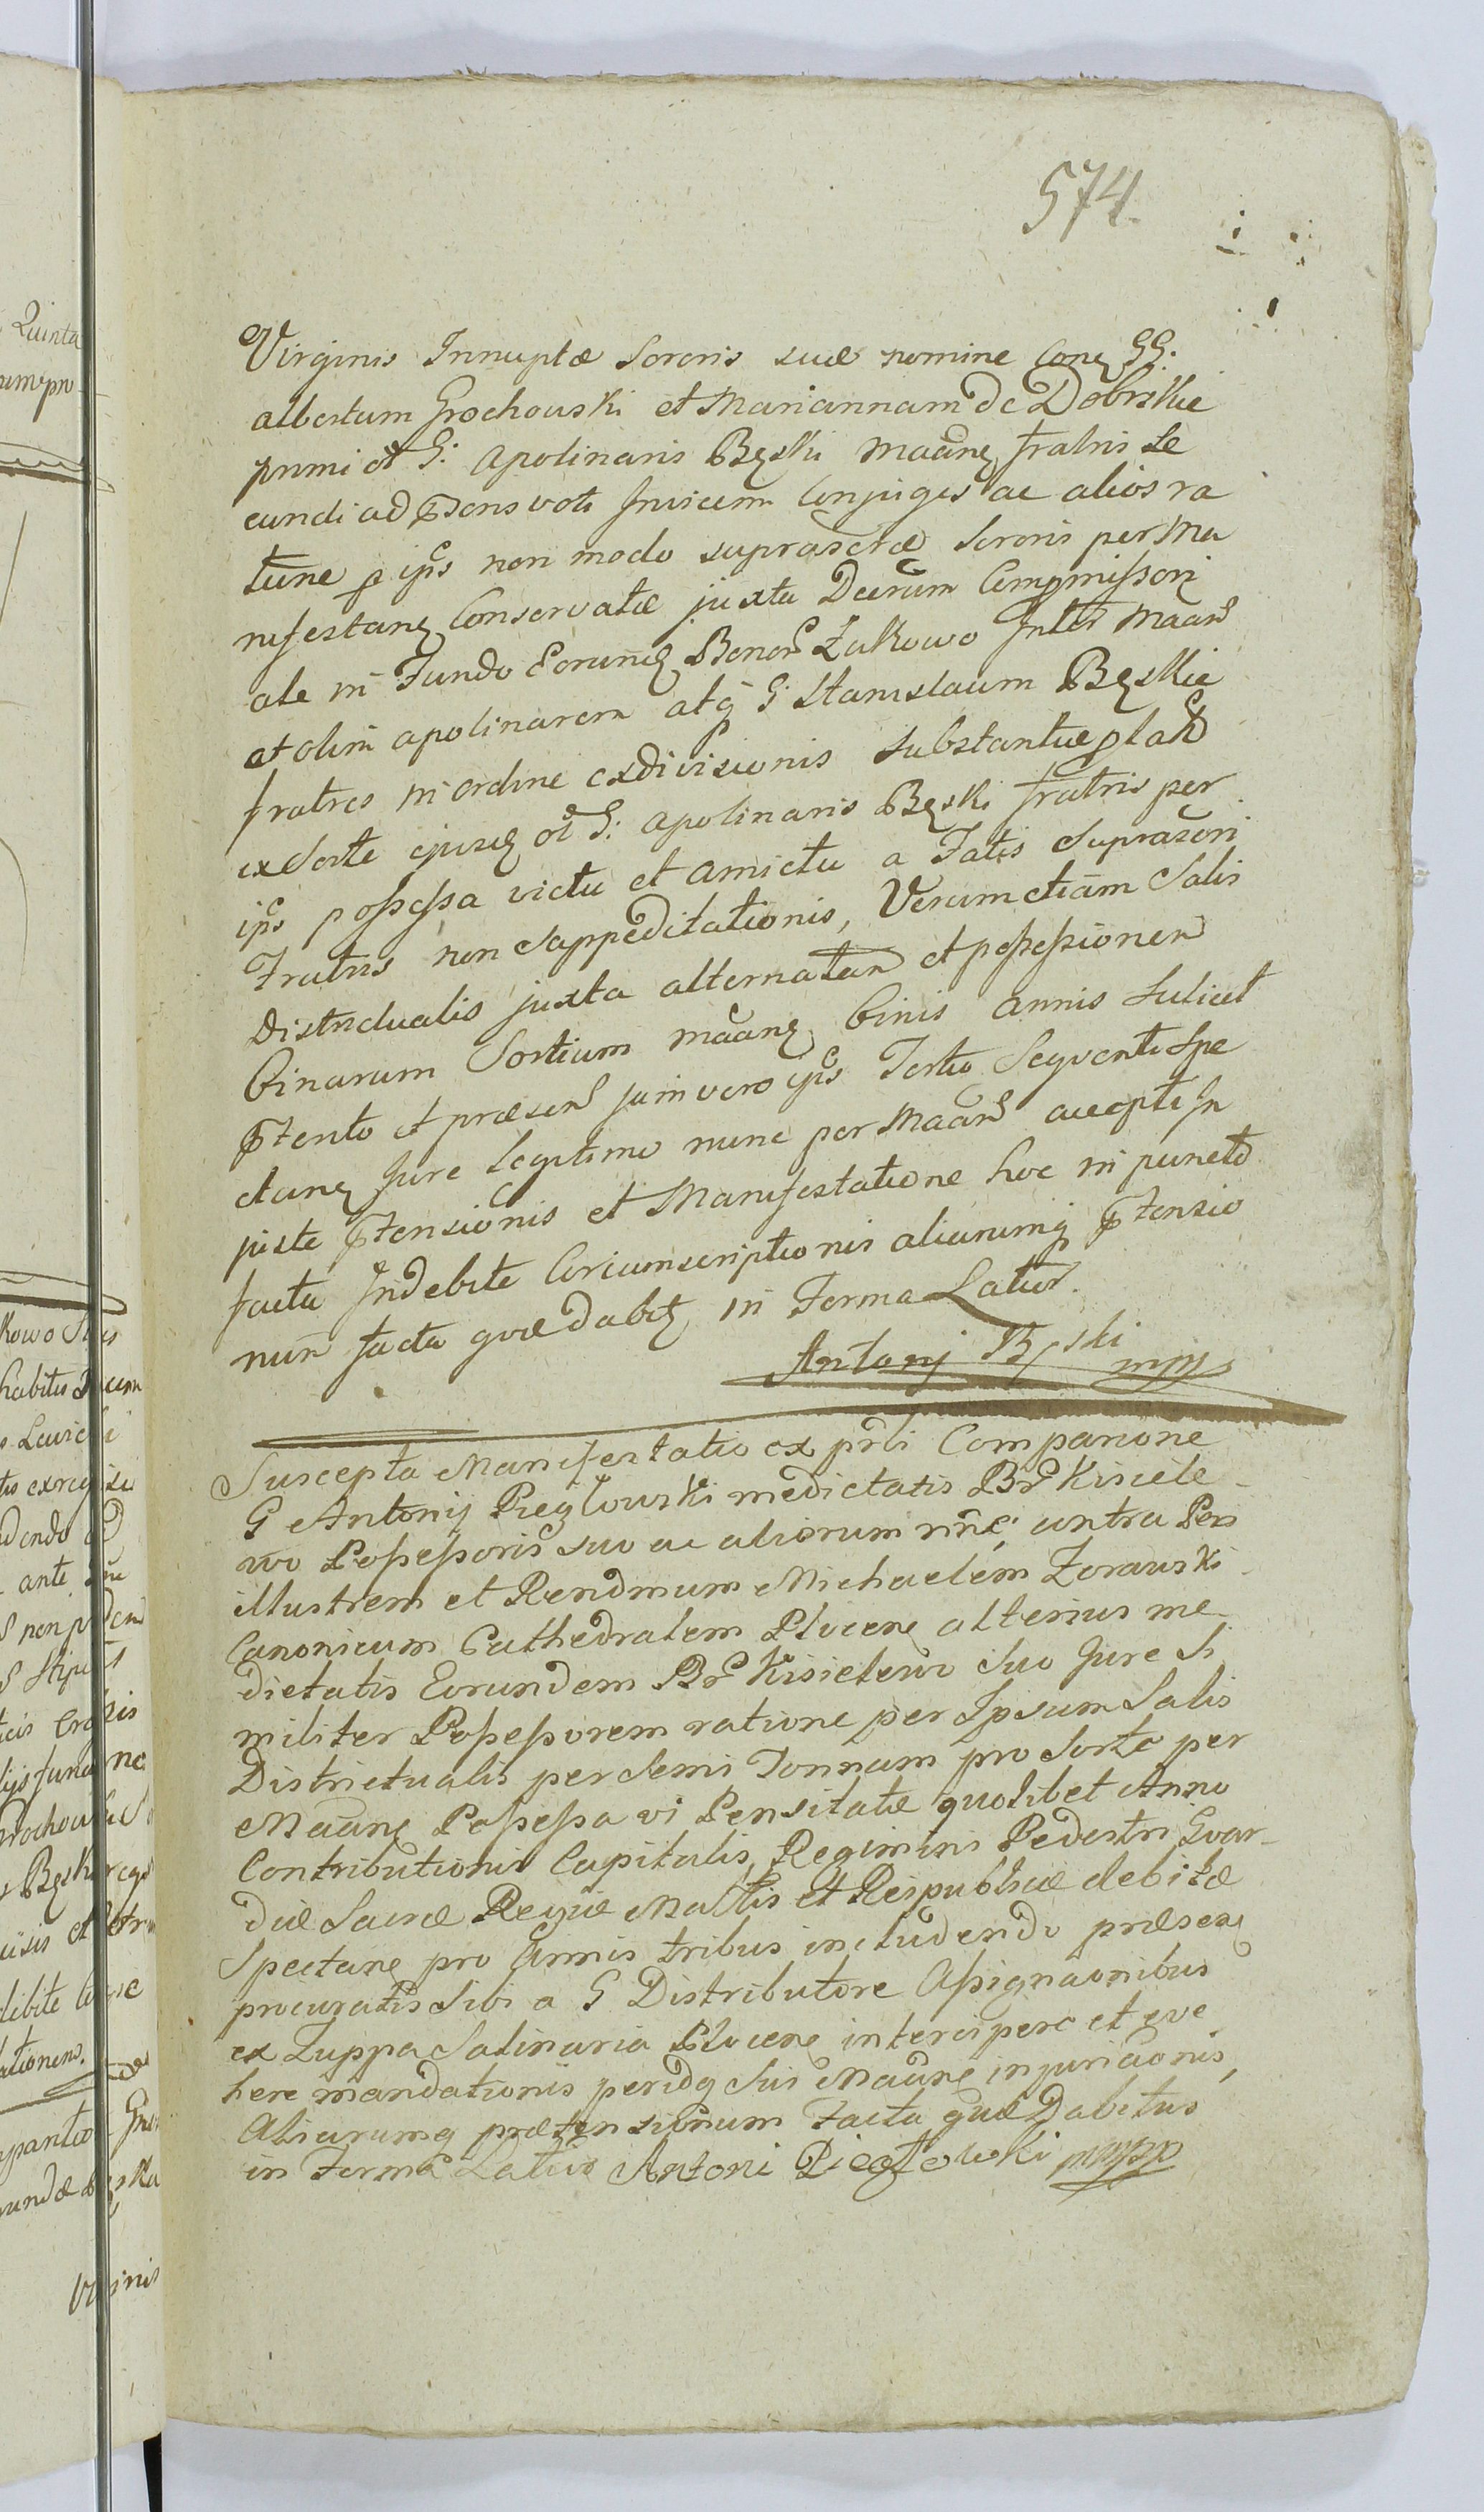 574.
Virginis Innuptæ Sororis suæ nomine Conq GG.
Albertum Grochowski et Mariannam de Dobrskie
primi ol G: Apolinaris Bęski Maanę fratris Se
cundi ad pdens voti Invicem Conjuges ac alios ra
tune p ips non modo suprasctæ Sororis per Ma
nifestanę Conservatæ juxta Decrum Compmissori
ale in Fundo Eorundę Bonor Zukowo Inter Maan
et olim Apolinarem atq G Stanislaum Bęskie
fratres in ordine exdivisionis Substantiæ plat
ex Sorte ejusdę ol G: Apolinaris Bęski fratris per
ips possessa victu et amictu a Fatis Suprascri
Fratris non Sappeditationis, Verum etiam Salis
Districtualis juxta alternatam et possessionem
binarum Sortium maanę binis annis Scilicet
pterito et præsen jam vero ips Tertio Seqventi Spe
ctanę Jure Legitimo nunc per Maan accepti In
juste ptensionis et Manifestatione hoc in puncto
facta Indebite Circumscriptionis aliarumq ptensio
num facta qvæ dabitę in Forma Latior.
Antoni Bęski mpp
Suscepta Manifestatio ex prli Comparione
G Antonij Pieglowski medietatis Br Kisiele-
wo Possessoris suo ac aliorum nne contra Per
illustrem et Rendmum Michaelem Zorawski
Canonicum Cathedralem Plocenę alterius me-
dietatis Eorundem Br Kisielewo Suo Jure Si
militer Possessorem ratione per Ipsum Salis
Districtualis per Semi Tonnam pro Sorte per
Maanę Possessa vi Pensitatæ quolibet Anno
Contributionis Capitalis Regimini Pedestri Gvar-
diæ Sacræ Regiæ Mattis et Reipublicæ debitæ
Spectanę pro Annis tribus includendo præsenę
procuratis Sibi a G Distributore Assignaonibus
ex Zuppa Salinaria Plocenę intercipere et eve
here mandationis peridq Sui Maanę injuriaonis,
Aliarumq prætensionum Facta qvæ Dabitus
in Forma Latior Antoni Pieglowski mpp